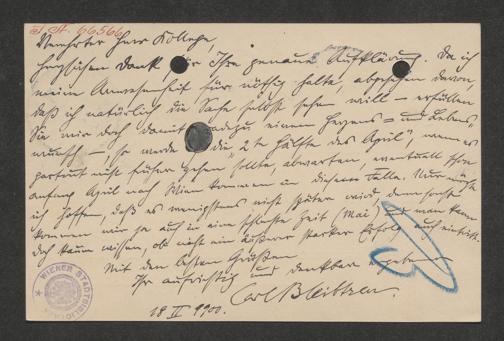 J. N. 66566
Verehrter Herr Kollege,
herzlichen Dank für Ihre genaue Aufklärung. Da ich
meine Anwesenheit für nöthig halte, abgesehen davon,
daß ich natürlich die Sache selbst sehn will – erfüllen
Sie mir doch damit geradezu einen Herzens- und Lebens-
wunsch –, so werde ich „die 2te Hälfte des April", wenn es
partout nicht früher gehen sollte, abwarten, eventuell schon
anfang April nach Wien kommen in diesem Falle. Nur müßte
ich hoffen, daß es wenigstens nicht später wird, denn sonst
kommen wir ja auch in eine schlechte Zeit (Mai) und man kann
doch kaum wissen, ob nicht ein äußerer starker Erfolg auch eintritt.
Mit den besten Grüßen
Ihr aufrichtig und dankbar ergebener
Carl Bleibtreu.
18 II 1900.
WIENER STADTBIBLIOTHEK